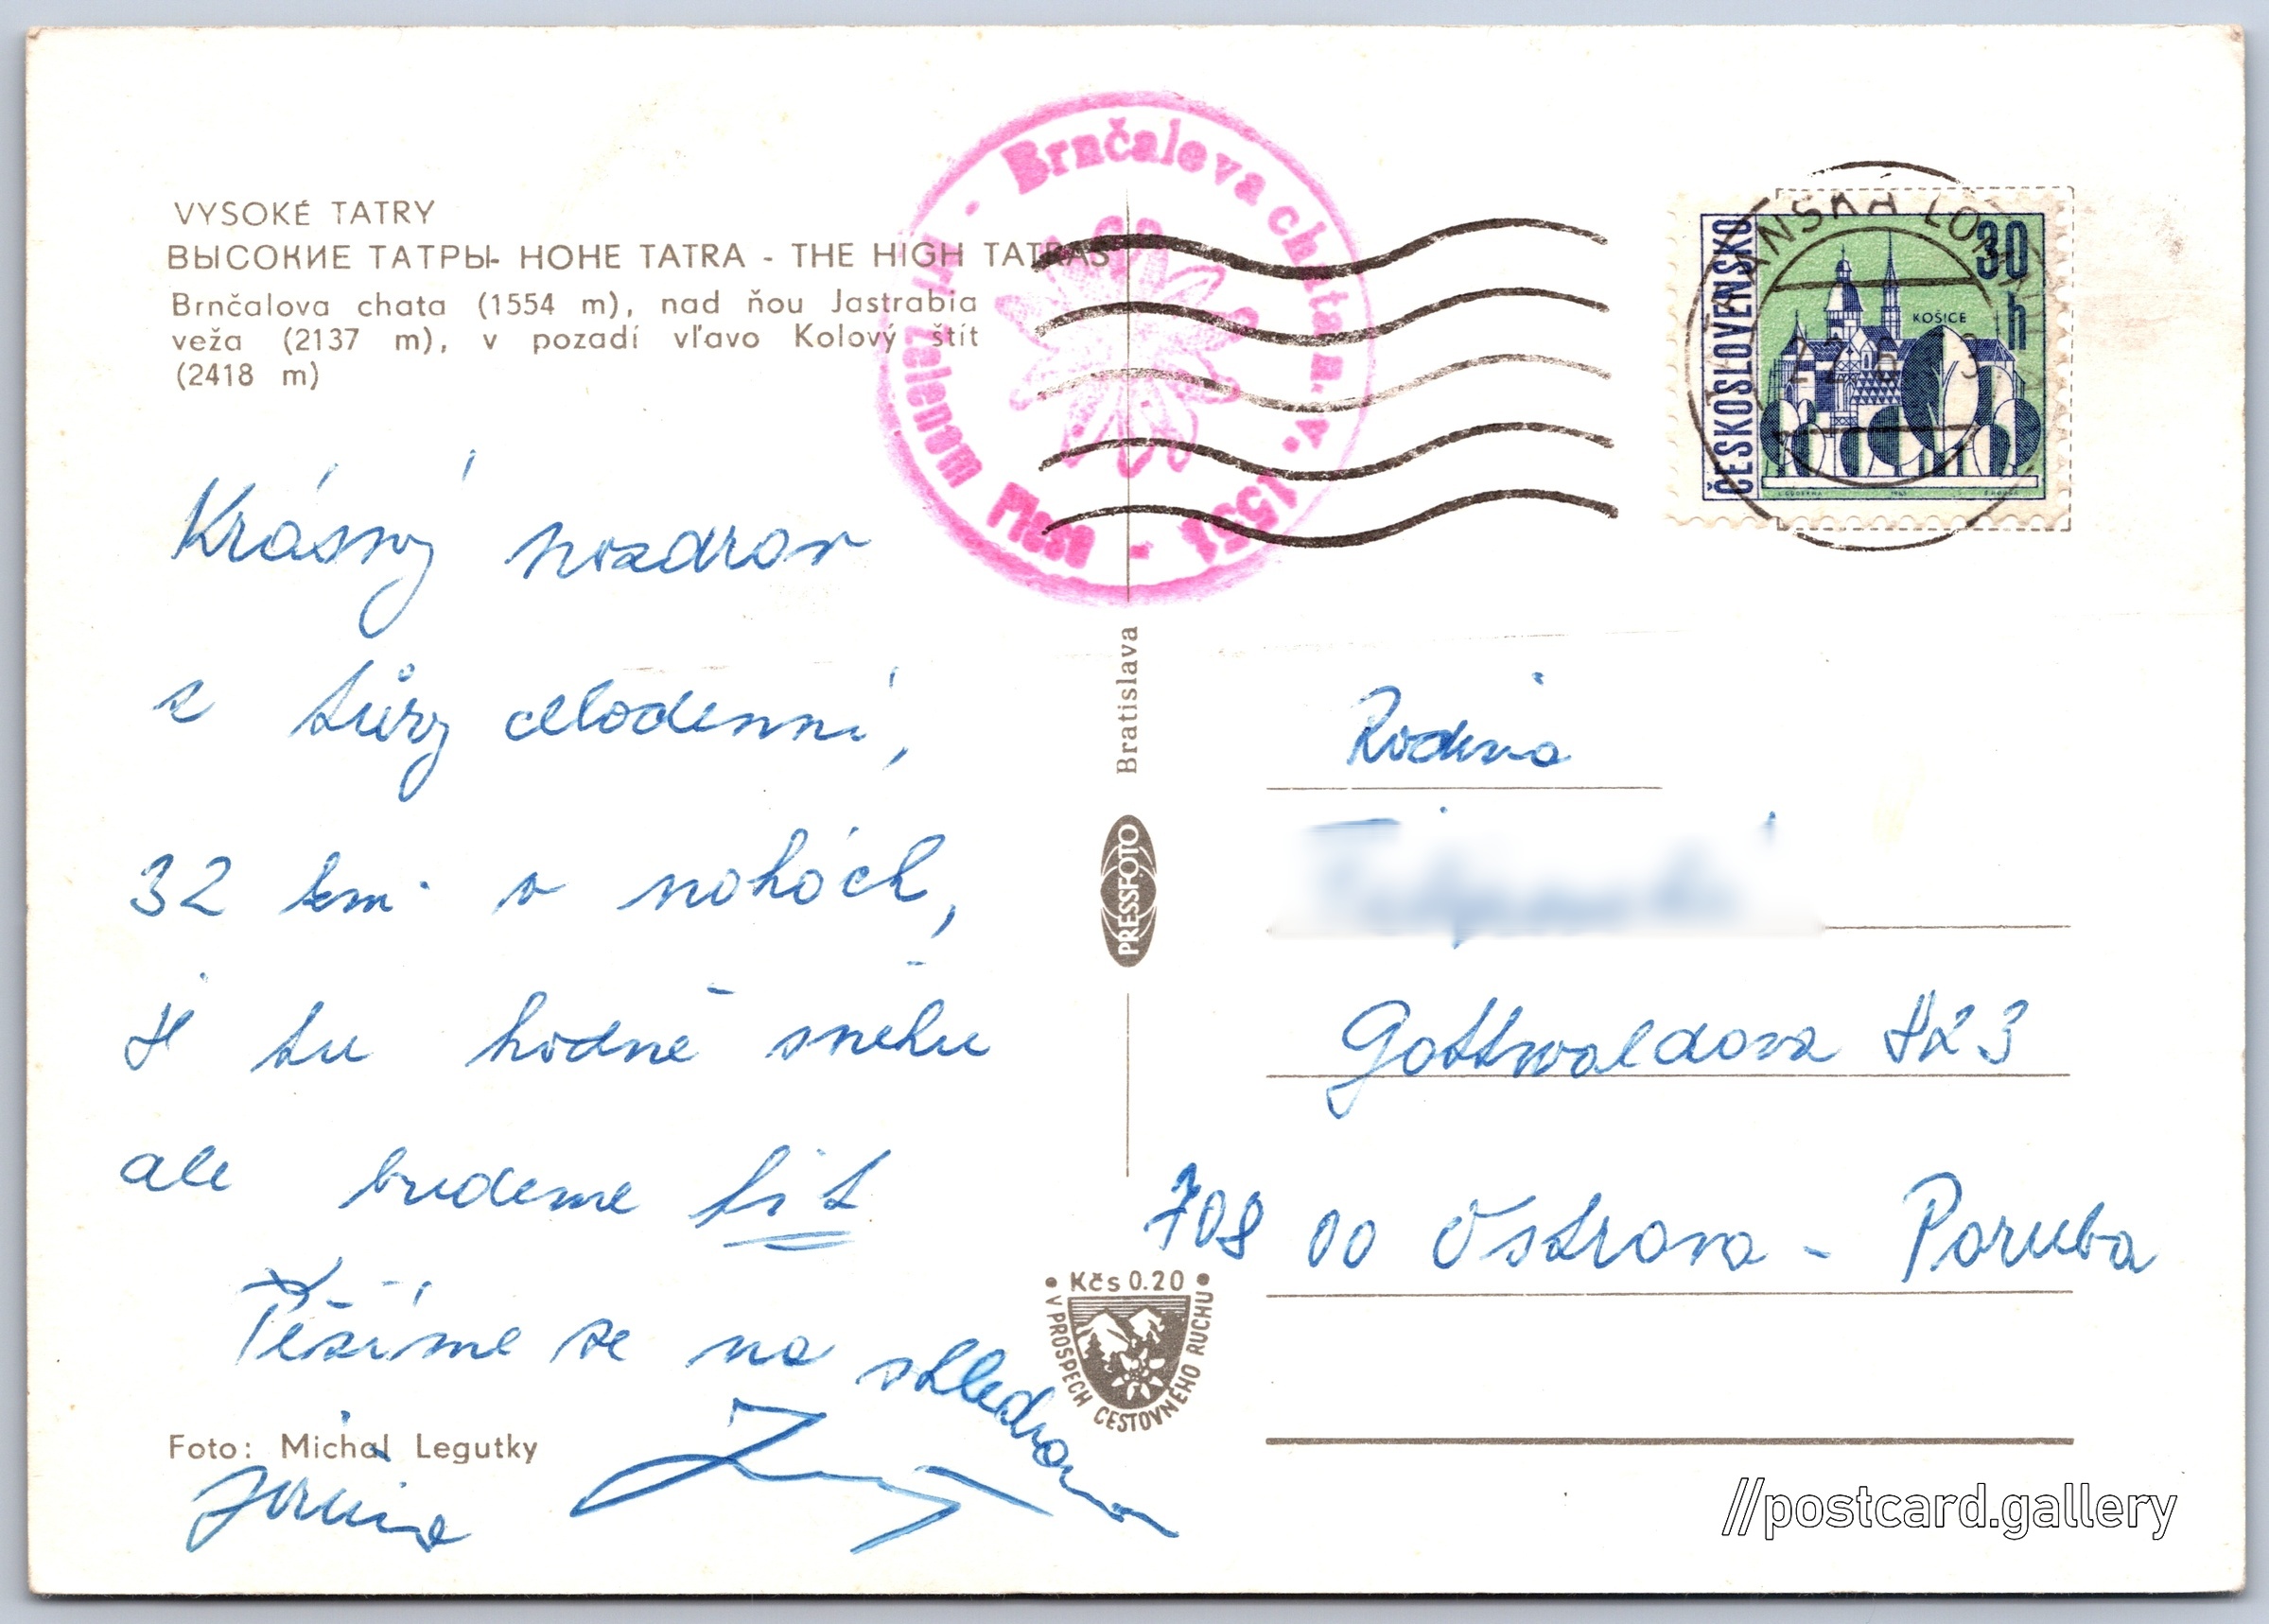 VYSOKÉ TATRY
ВЫСОКИЕ ТАТРЫ- HOHE TATRA - THE HIGH TATRAS
Brnčalova chata (1554 m), nad ňou Jastrabia
veža (2137 m), v pozadí vľavo Kolový štít
(2418 m)
Brnčalova chata n.v. 1551 - Plese Zelenom
ČESKOSLOVENSKO
30 h
KOŠICE
Krásný pozdrav
z túry celodenní,
32 km v nohách,
je tu hodně sněhu
ale budeme fit
Těšíme se na shledanou
Foto: Michal Legutky
Bratislava
PRESSFOTO
Kčs 0.20
V PROSPECH CESTOVNÉHO RUCHU
Rodina
Gottwaldova
708 00 Ostrava - Poruba
//postcard.gallery